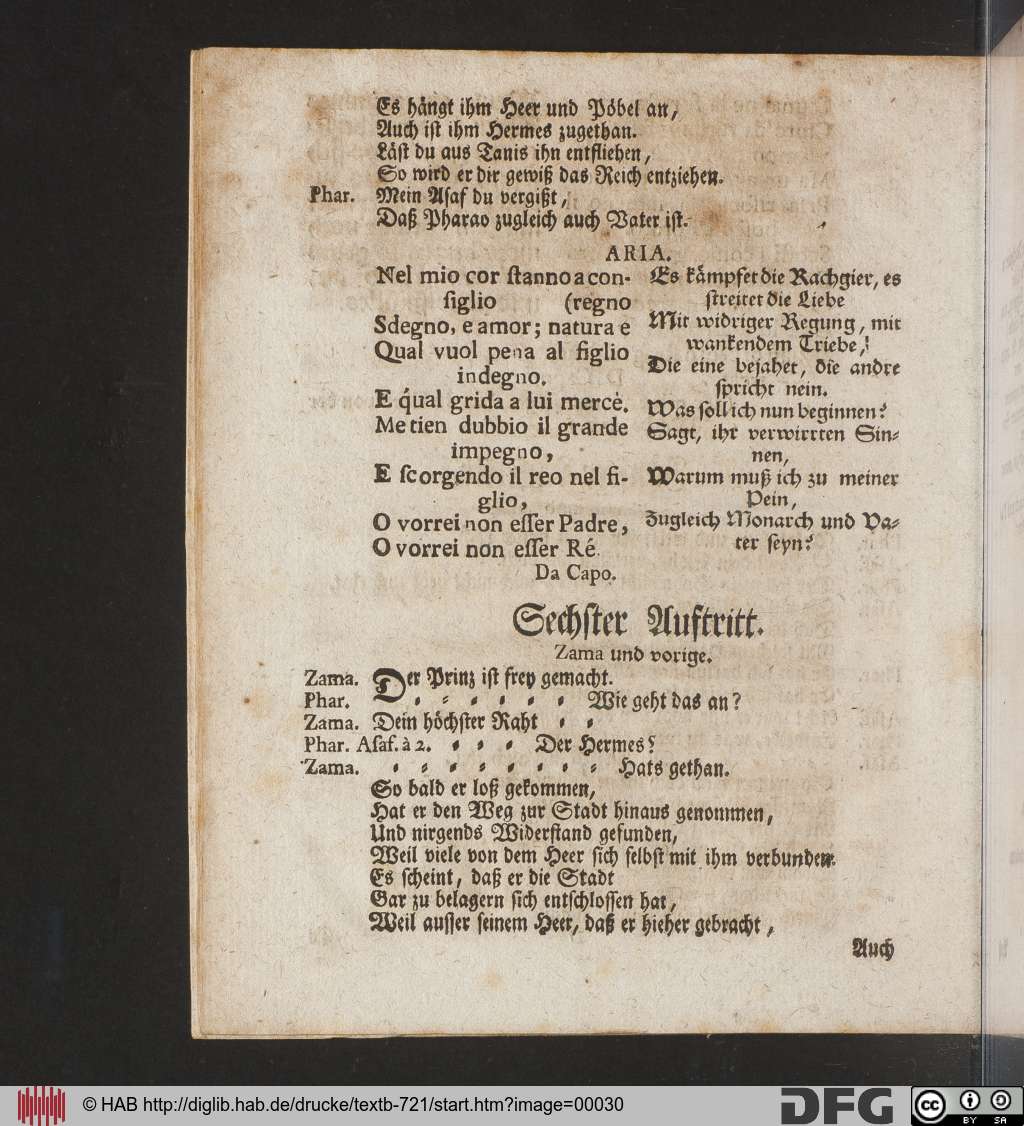 Es hängt ihm Heer und Pöbel an,
Auch ist ihm Hermes zugethan.
Läst du aus Tanis ihn entfliehen,
So wird er dir gewiß das Reich entziehen.
Phar. Mein Asaf du vergißt,
Daß Pharao zugleich auch Vater ist.
ARIA.
Nel mio cor ſtanno a con-
ſiglio (regno
Sdegno, e amor; natura e
Qual vuol pena al figlio
indegno.
E qual grida a lui mercè.
Me tien dubbio il grande
impegno,
E ſcorgendo il reo nel fi-
glio,
O vorrei non eſſer Padre,
O vorrei non eſſer Ré
Da Capo.
Es kämpfet die Rachgier, es
streitet die Liebe
Mit widriger Regung, mit
wankendem Triebe,
Die eine bejahet, die andre
spricht nein.
Was soll ich nun beginnen?
Sagt, ihr verwirrten Sin-
nen,
Warum muß ich zu meiner
Pein,
Zugleich Monarch und Va-
ter seyn?
Sechster Auftritt.
Zama und vorige.
Zama. Der Prinz ist frey gemacht.
Phar. - - - - - - Wie geht das an?
Zama. Dein höchster Raht - -
Phar. Aſaf. à 2. - - - Der Hermes?
Zama. - - - - - - - - Hats gethan.
So bald er loß gekommen,
Hat er den Weg zur Stadt hinaus genommen,
Und nirgends Widerstand gefunden,
Weil viele von dem Heer sich selbst mit ihm verbunden.
Es scheint, daß er die Stadt
Gar zu belagern sich entschlossen hat,
Weil ausser seinem Heer, daß er hieher gebracht,
Auch
© HAB http://diglib.hab.de/drucke/textb-721/start.htm?image=00030
DFG
cc BY SA